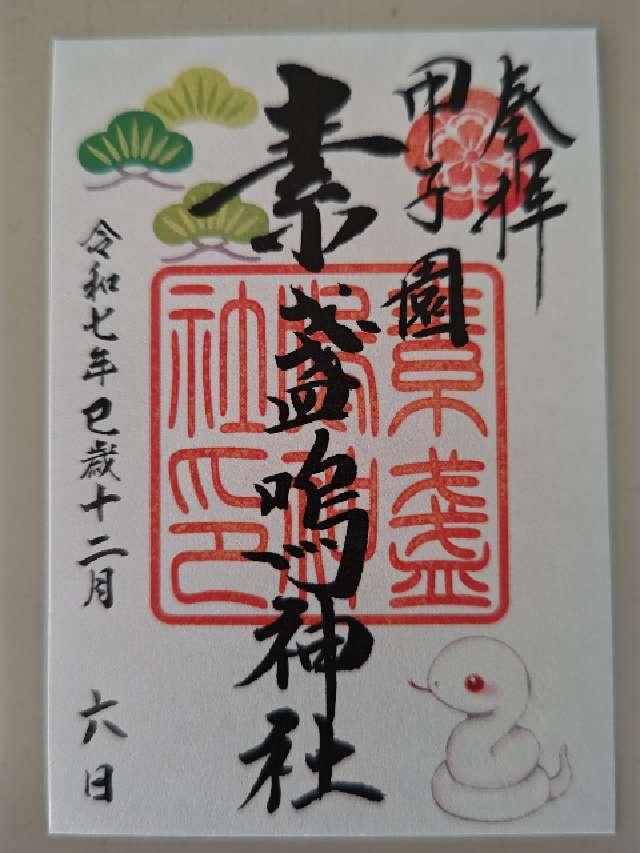 奉拝
甲子園
素盞嗚神社
素盞
嗚神
社印
令和七年巳歳十二月 六日